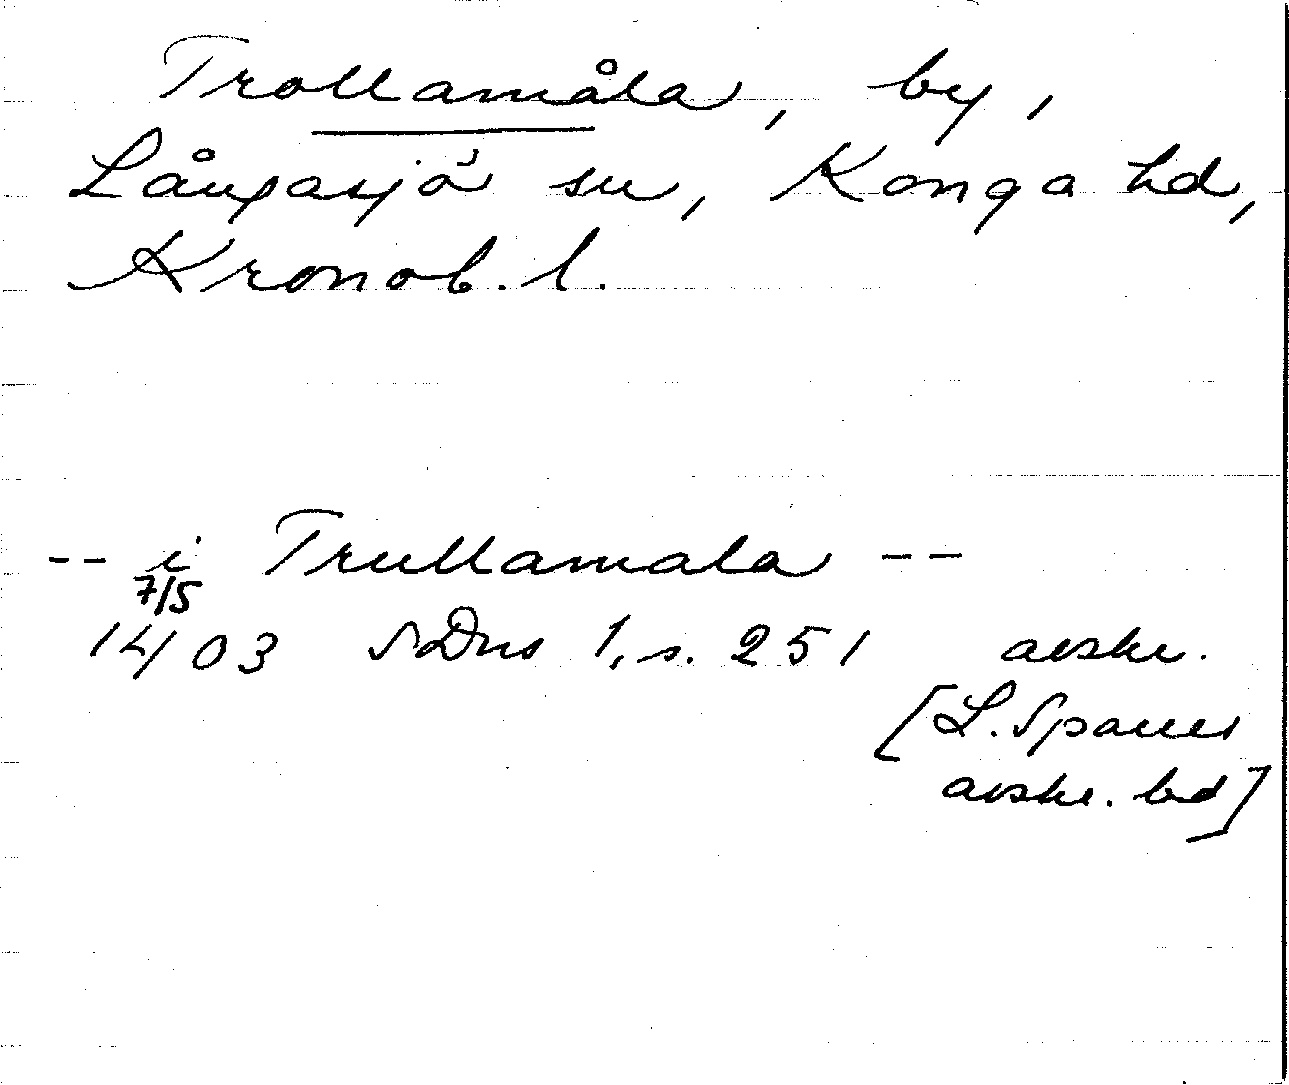 Trollamåla, by,
Långasjö sn, Konga hd,
Kronob. l.
-- i Trullamala --
7/5
1403 SDns 1, s. 251 avskr.
[L. Sparres
avskr. bd]